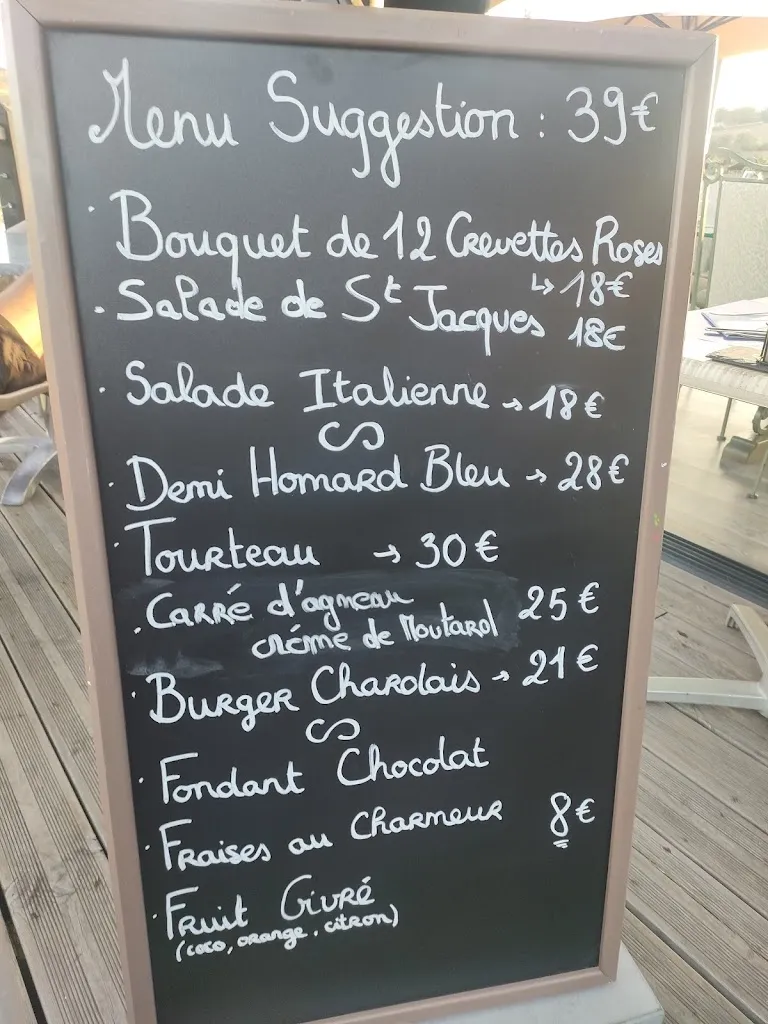 Menu Suggestion : 39€
· Bouquet de 12 Crevettes Roses
↳ 18€
· Salade de St Jacques 18€
· Salade Italienne → 18€
· Demi Homard Bleu → 28€
· Tourteau → 30€
· Carré d'agneau 25€
crème de Moutard
· Burger Charolais → 21€
· Fondant Chocolat
· Fraises au Charmeur 8€
· Fruit Givré
(coco, orange, citron)